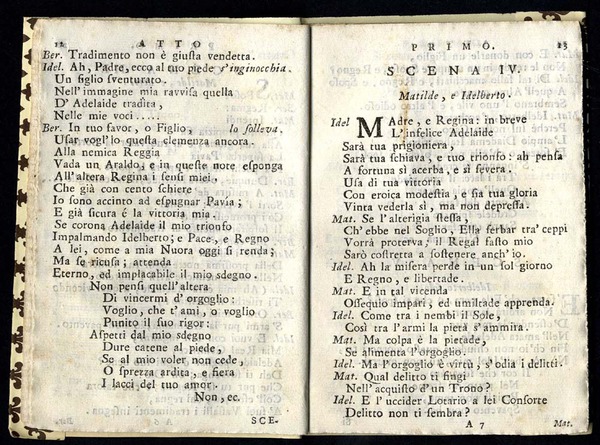 12 ATTO
Ber. Tradimento non è giuſta vendetta.
Idel. Ah, Padre, ecco al tuo piede s'inginocchia.
Un figlio sventurato.
Nell'immagine mia ravviſa quella
D'Adelaide tradita,
Nelle mie voci.....
Ber. In tuo favor, o Figlio, lo ſolleva.
Uſar vogl'Io queſta clemenza ancora.
Alla nemica Reggia
Vada un Araldo; e in queſte note eſponga
All'altera Regina i ſenſi miei.
Che già con cento ſchiere
Io ſono accinto ad eſpugnar Pavia;
E già ſicura é la vittoria mia.
Se corona Adelaide il mio trionfo
Impalmando Idelberto; e Pace, e Regno
A lei, come a mia Nuora oggi ſi renda;
Ma ſe ricuſa; attenda
Eterno, ed implacabile il mio sdegno.
Non penſi quell'altera
Di vincermi d'orgoglio:
Voglio, che t'ami, o voglio
Punito il ſuo rigor:
Aſpetti dal mio sdegno
Dure catene al piede,
Se al mio voler non cede,
O ſprezza ardita, e fiera
I lacci del tuo amor.
Non, ec.
SCE-
PRIMO. 13
SCENA IV.
Matilde, e Idelberto.
Idel MAdre, e Regina: in breve
L'infelice Adelaide
Sarà tua prigioniera,
Sarà tua ſchiava, e tuo trionfo: ah penſa
A fortuna sì acerba, e sì ſevera.
Uſa di tua vittoria
Con eroica modeſtia, e ſia tua gloria
Vinta vederla sì, ma non depreſſa.
Mat. Se l'alterigia ſteſſa,
Ch'ebbe nel Soglio, Ella ſerbar tra' ceppi
Vorrà proterva; il Regal faſto mio
Sarò coſtretta a ſoſtenere anch'io.
Idel. Ah la miſera perde in un ſol giorno
E Regno, e libertade.
Mat. E in tal vicenda
Oſſequio impari, ed umiltade apprenda.
Idel. Come tra i nembi il Sole,
Così tra l'armi la pietà s'ammira.
Mat. Ma colpa è la pietade,
Se alimenta l'orgoglio.
Idel. Ma l'orgoglio è virtù, s'odia i delitti.
Mat. Qual delitto ti fingi
Nell'acquiſto d'un Trono?
Idel. E l'uccider Lotario a lei Conſorte
Delitto non ti ſembra?
A 7 Mat.